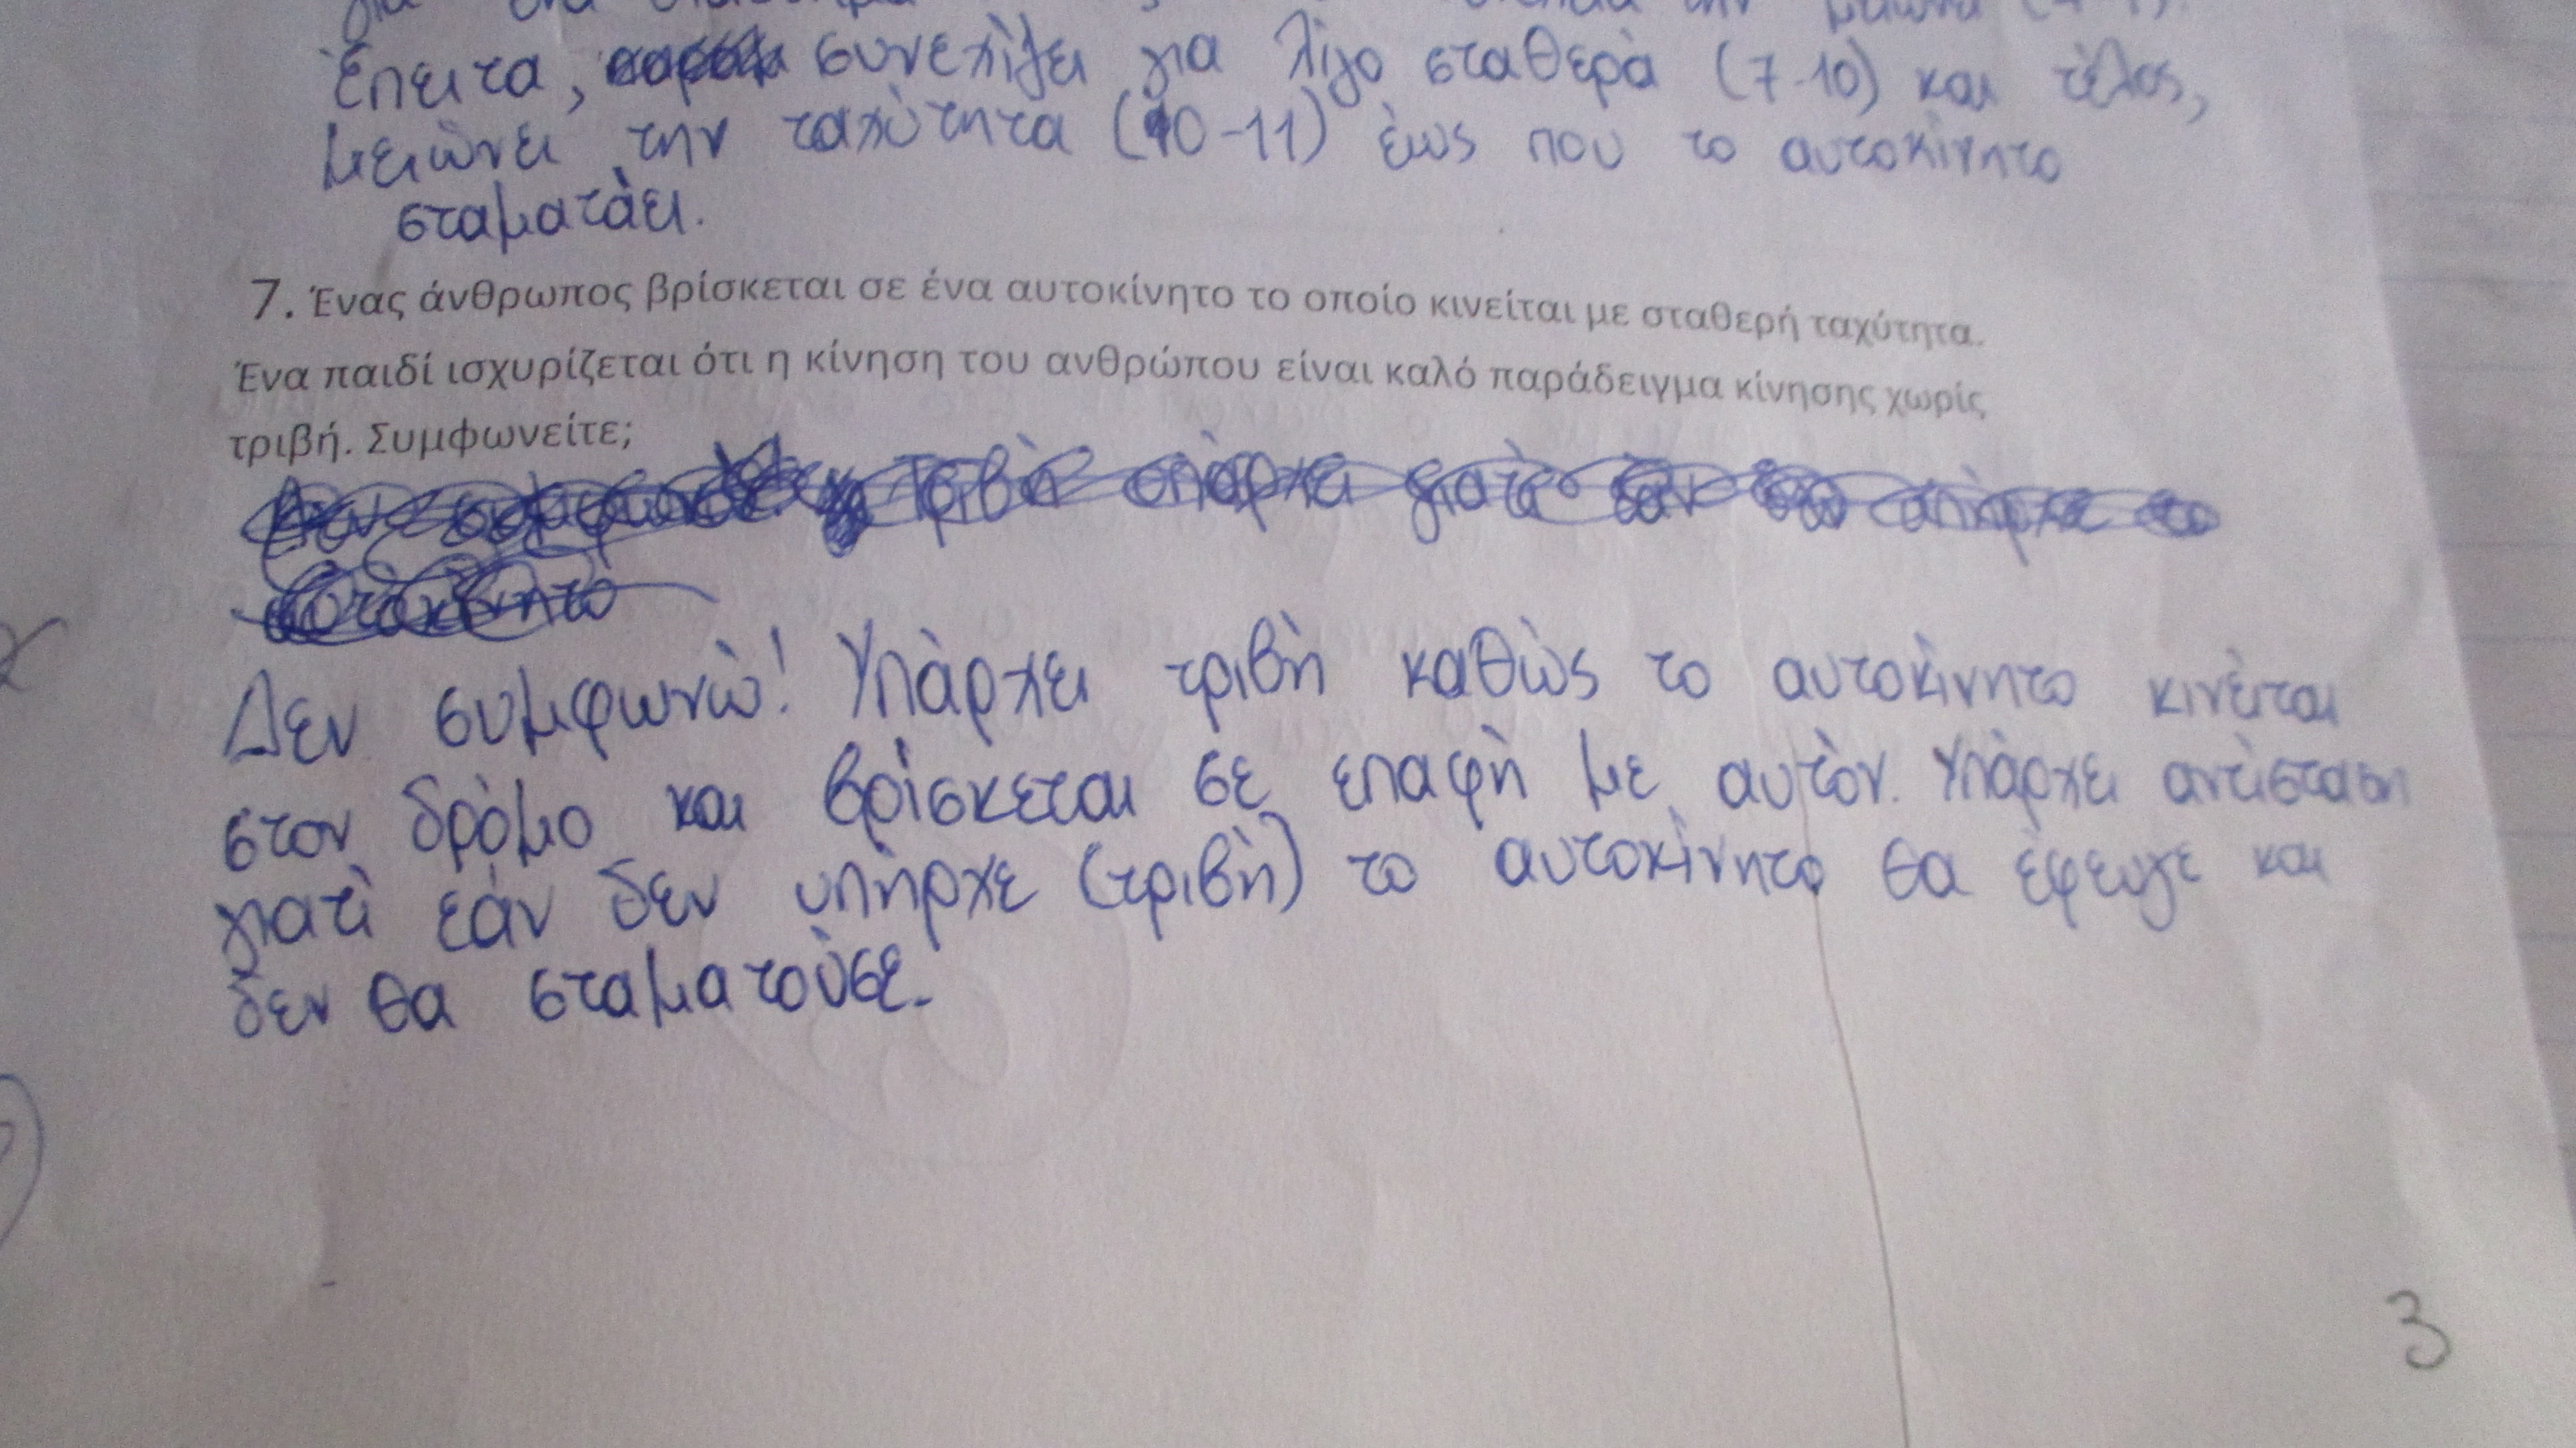 για ένα
Έπειτα, συνεχίζει για λίγο σταθερά (7-10) και τέλος,
μειώνει την ταχύτητα (10-11) έως που το αυτοκίνητο
σταματάει.
7. Ένας άνθρωπος βρίσκεται σε ένα αυτοκίνητο το οποίο κινείται με σταθερή ταχύτητα.
Ένα παιδί ισχυρίζεται ότι η κίνηση του ανθρώπου είναι καλό παράδειγμα κίνησης χωρίς
τριβή. Συμφωνείτε;
Τριβή υπάρχει γιατί εάν δεν υπήρχε το
αυτοκίνητο
Δεν συμφωνώ! Υπάρχει τριβή καθώς το αυτοκίνητο κινείται
στον δρόμο και βρίσκεται σε επαφή με αυτόν. Υπάρχει αντίσταση
γιατί εάν δεν υπήρχε (τριβή) το αυτοκίνητο θα έφευγε και
δεν θα σταματούσε.
3